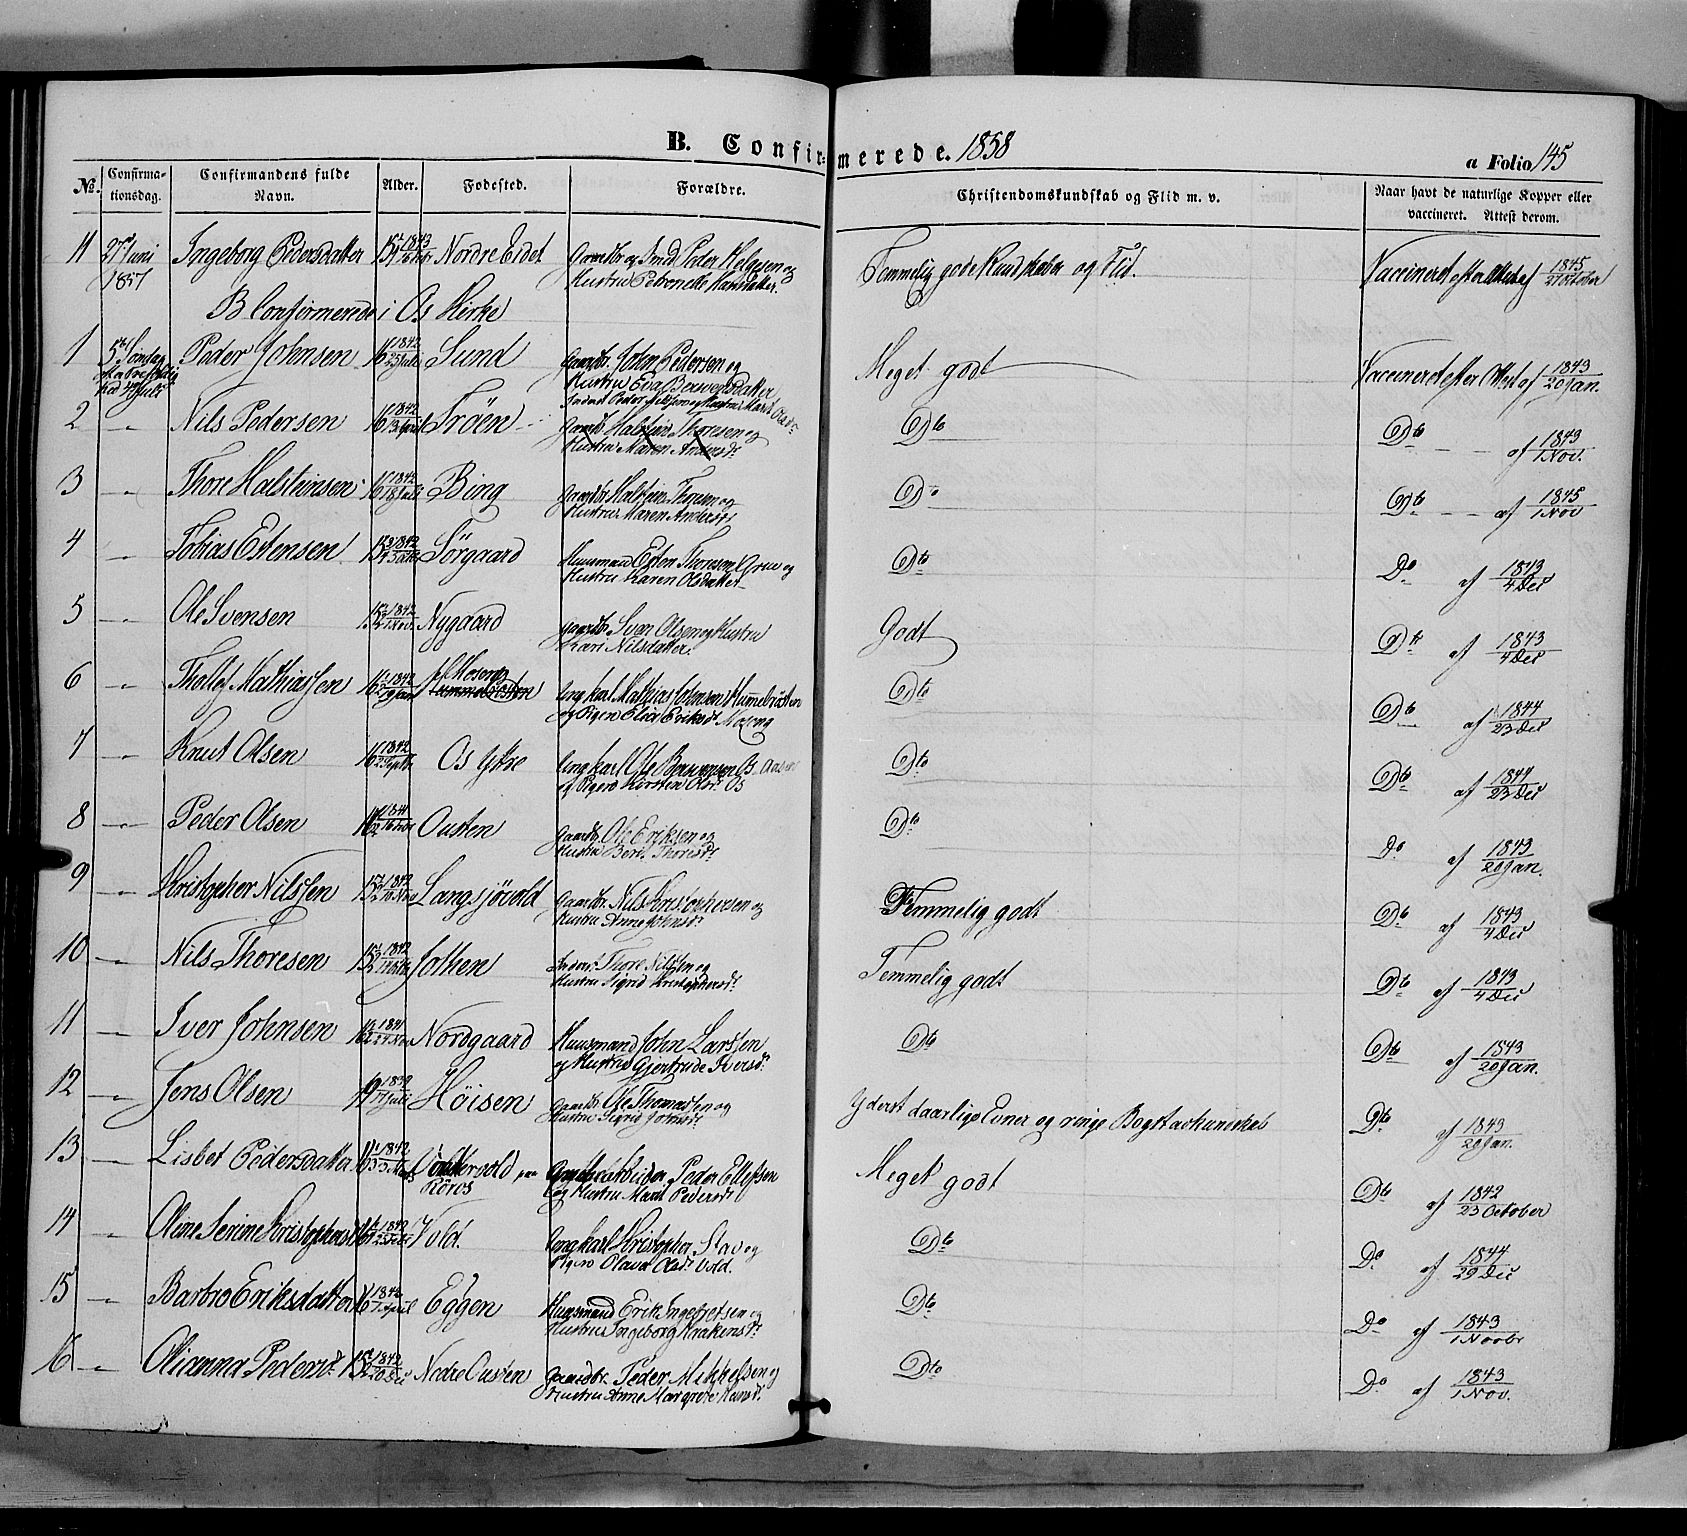 B. Confirmerede. 1858
a Folio 145
No. Confirmationsdag. Confirmandens fulde Navn. Alder. Fødested. Forældre. Christendomskundskab og Flid m. v. Naar havt de naturlige Kopper eller vaccineret. Attest derom.
11 27 Juni 1857 Ingeborg Pedersdatter 1843 Nordre Eidet Peder Helgesen og Hustru Petronelle Temmelig gode Kundskaber og Flid. Vaccineret efter Attest af 1845 21 October
B Confirmerede i Os Kirke
1 5te Søndag 4 Juli Peder Johnsen 16 1842 25 Juli Sund Gaardbr. John Pedersen og Hustru Eva Meget godt Vaccineret efter Attest af 1843 20 Jan.
2 -"- Nils Pedersen 16 1842 Trøen Gaardb. Halstein Thoresen og Hustru Maren Andersd. Dto Dto af 1843 1 Nov.
3 -"- Thore Halsteinsen 16 1842 18 Juli Bing Gaardbr. Halstein Thoresen og Hustru Maren Andersd. Do Dto af 1845 1 Nov
4 -"- Tobias Estensen 15 1842 Sörgaard Huusmand Esten Thoresen Grue og Hustru Karen Olsdatter Dto Do af 1843 4 Dec
5 -"- Ole Svensen 15 1842 1 Nov. Nygaard Gaardbr. Sven Olsen og Hustru Kari Nilsdatter. Godt Dto af 1843 4 Dec
6 -"- Thollef Mathiassen 16 1842 Moseng Ungkarl Mathias Johnsen Hummelvolden og Pigen Eli Eriksdt. Moseng Dto Dto af 1844 23 Dec
7 -"- Knut Olsen 16 1842 Os Ytre Ungkarl Ole Os og Pigen Kirsten Olsdt. Os Dto Dto af 1844 23 Dec
8 -"- Peder Olsen 16 1841 Ousten Gaardbr. Ole Eriksen og Hustru Berit Thoresdt. Do Do af 1843 20 Jan.
9 -"- Kristopher Nilssen 15 1842 Langsjövold Gaardbr. Nils Kristophersen og Hustru Anne Johnsdt. Temmelig godt Dto af 1843 4 Dec
10 -"- Nils Thoresen 15 1842 Jothen Inderst Thore Nilssen og Hustru Sigrid Kristophersdt. Temmelig godt Dto af 1843 4 Dec
11 -"- Iver Johnsen 16 1841 Nordgaard Huusmand John Larssen og Hustru Gjertrude Iversdt. Dto Dto af 1843 20 Jan.
12 -"- Jens Olsen 19 1839 Juli Höisen Gaardbr. Ole Thomassen og Hustru Sigrid Johnsdt. Yderst daarlige Evner og ringe Bogstavkundskab Dto af 1843 20 Jan.
13 -"- Lisbet Pedersdatter 16 1842 Röros Peder Ellefsen og Hustru Marit Pedersdt. Meget godt Dto af 1842 23 October
14 -"- Oline Serine Kristophersd. 16 1842 Vold. Ungkarl Kristopher og Pigen Olava Olsdt. Vold. Dto Do af 1844 29 Dec
15 -"- Barbro Eriksdatter 16 1842 April Eggen Huusmand Erik Ingebretsen og Hustru Ingeborg Dto Do af 1843 1 Novbr
16 -"- Olianna Pedersd. 15 1842 20 Dec Nedre Ousten Gaardbr. Peder Mikkelsen og Hustru Anne Margrete Hansd. Dto Do af 1843 1 Nov.